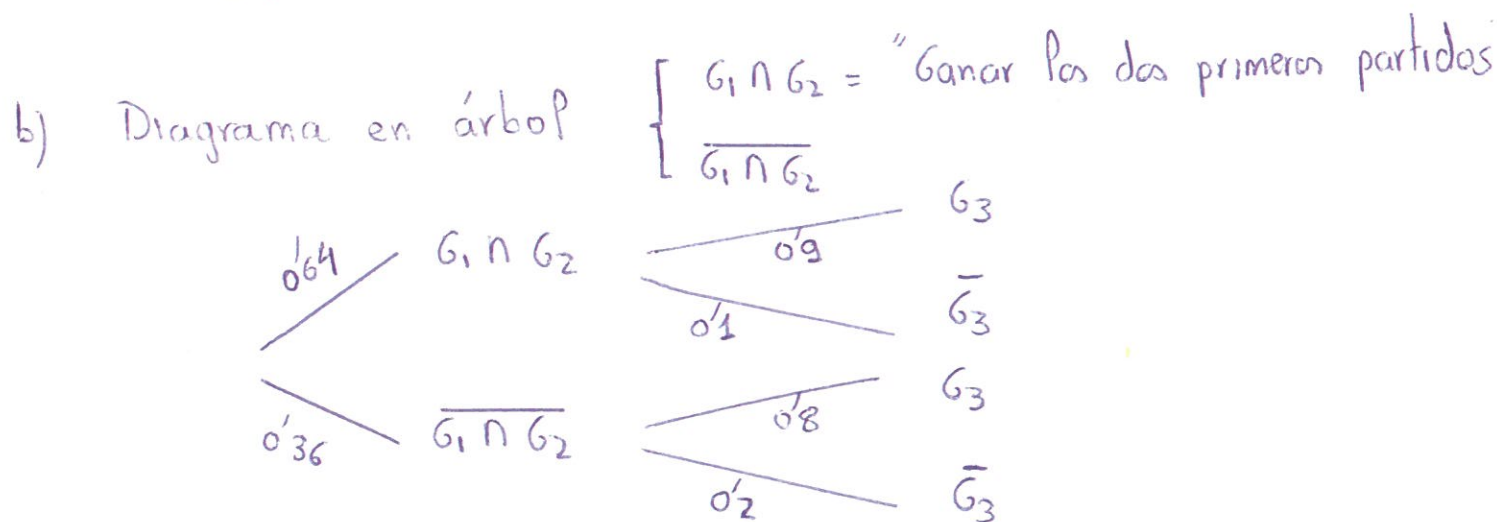 b) Diagrama en árbol { G₁ ∩ G₂ = "Ganar los dos primeros partidos
$\overline{G_1 \cap G_2}$
0'64 G₁ ∩ G₂ 0'9 G₃
0'1 $\overline{G_3}$
0'36 $\overline{G_1 \cap G_2}$ 0'8 G₃
0'2 $\overline{G_3}$